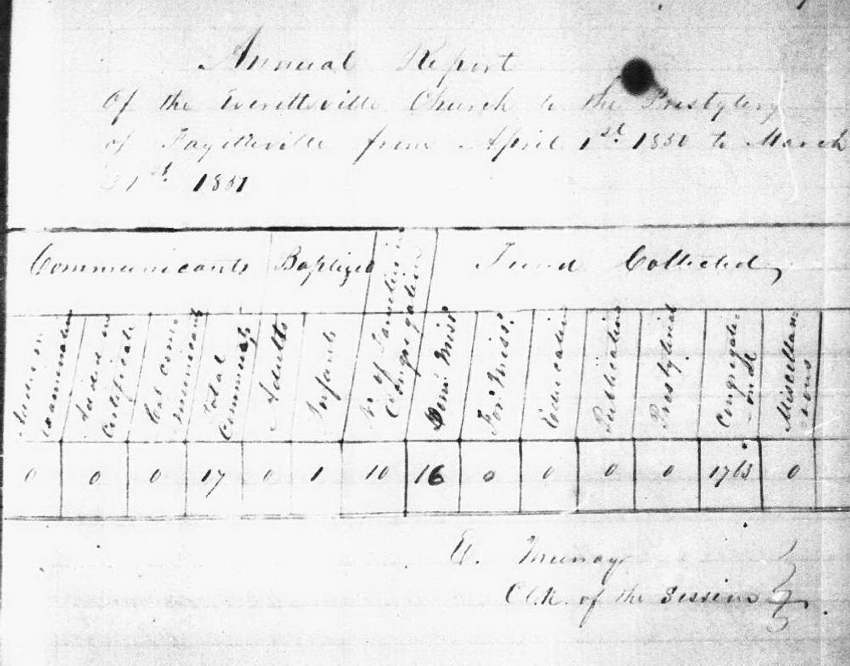 Annual Report
Of the Everettsville Church to the Presbytery
of Fayetteville from April 1st 1850 to March
31st 1851
Communicants Baptized No of Families in Congregation Fund Collected
Added on examination Added on Certificate Col com-municants Total Communicants Adults Infants Dom. Miss. For. Miss. Education Publication Presbyterial Congregati-onal Miscellan-eous
0 0 0 17 0 1 10 16 0 0 0 0 0
Murray
Clk of the Sessions